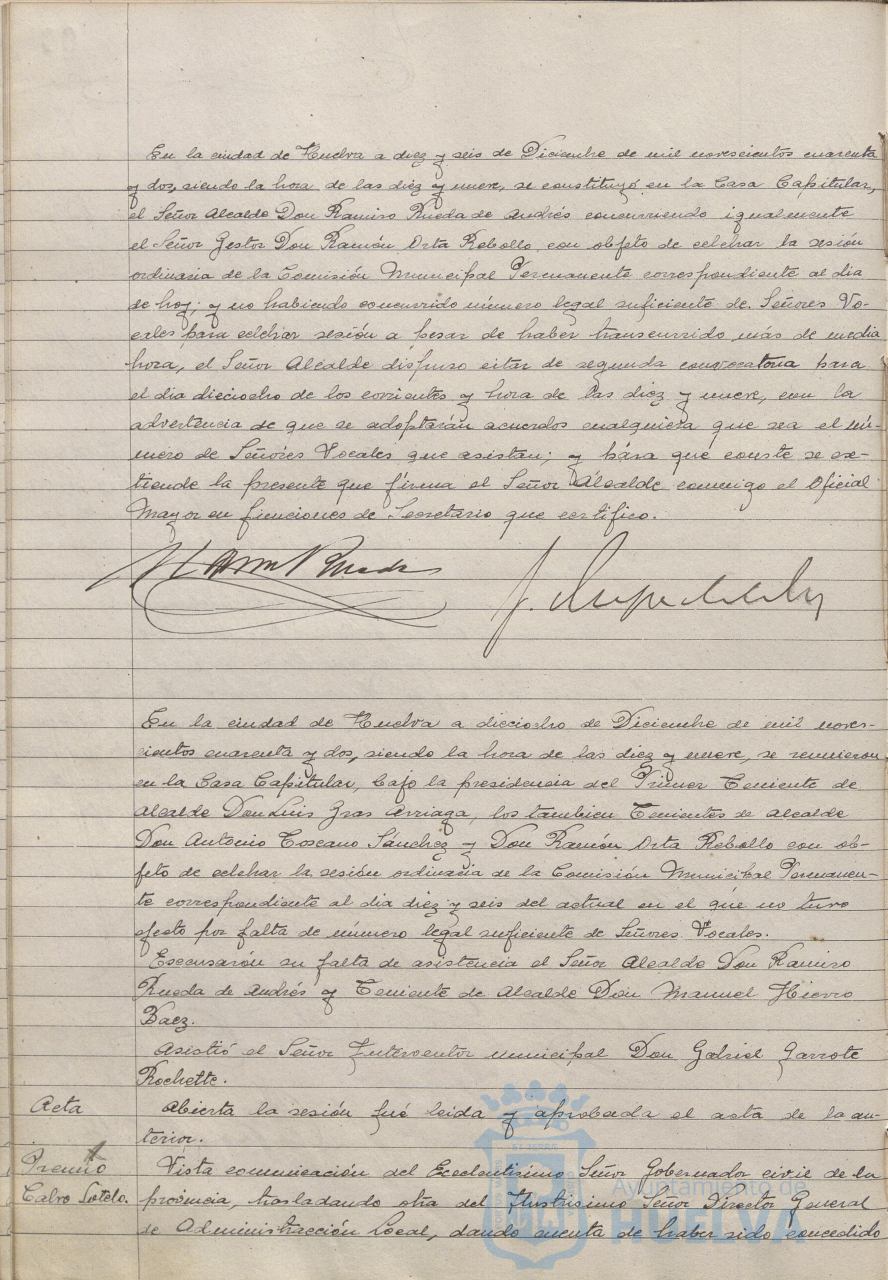 En la ciudad de Huelva a diez y seis de Diciembre de mil novecientos cuarenta
y dos, siendo la hora de las diez y nueve, se constituyó en la Casa Capitular,
el Señor Alcalde Don Ramiro Rueda de Andrés concurriendo igualmente
el Señor Gestor Don Ramón Orta Rebollo, con objeto de celebrar la sesión
ordinaria de la Comisión Municipal Permanente correspondiente al dia
de hoy; y no habiendo concurrido número legal suficiente de Señores Vo-
cales para celebrar sesión a pesar de haber transcurrido más de media
hora, el Señor Alcalde dispuso citar de segunda convocatoria para
el dia dieciocho de los corrientes y hora de las diez y nueve, con la
advertencia de que se adoptarán acuerdos cualquiera que sea el nú-
mero de Señores Vocales que asistan; y para que conste se ex-
tiende la presente que firma el Señor Alcalde conmigo el Oficial
Mayor en funciones de Secretario que certifico.
En la ciudad de Huelva a dieciocho de Diciembre de mil nove-
cientos cuarenta y dos, siendo la hora de las diez y nueve, se reunieron
en la Casa Capitular, bajo la presidencia del Primer Teniente de
Alcalde Don Luis Gras Arriaga, los tambien Tenientes de Alcalde
Don Antonio Toscano Sánchez y Don Ramón Orta Rebollo con ob-
jeto de celebrar la sesión ordinaria de la Comisión Municipal Permanen-
te correspondiente al dia diez y seis del actual en el que no tuvo
efecto por falta de número legal suficiente de Señores Vocales.
Escusarón su falta de asistencia el Señor Alcalde Don Ramiro
Rueda de Andrés y Teniente de Alcalde Don Manuel Hierro
Baez.
Asistió el Señor Interventor municipal Don Gabriel Garrote
Rochette.
Acta
Abierta la sesión fué leida y aprobada el acta de la an-
terior.
Premio
Calvo Sotelo.
Vista comunicación del Excelentisimo Señor Gobernador civil de la
provincia, trasladando otra del Ilustrisimo Señor Director General
de Administracción Local, dando cuenta de haber sido concedido
Ayuntamiento de
HUELVA